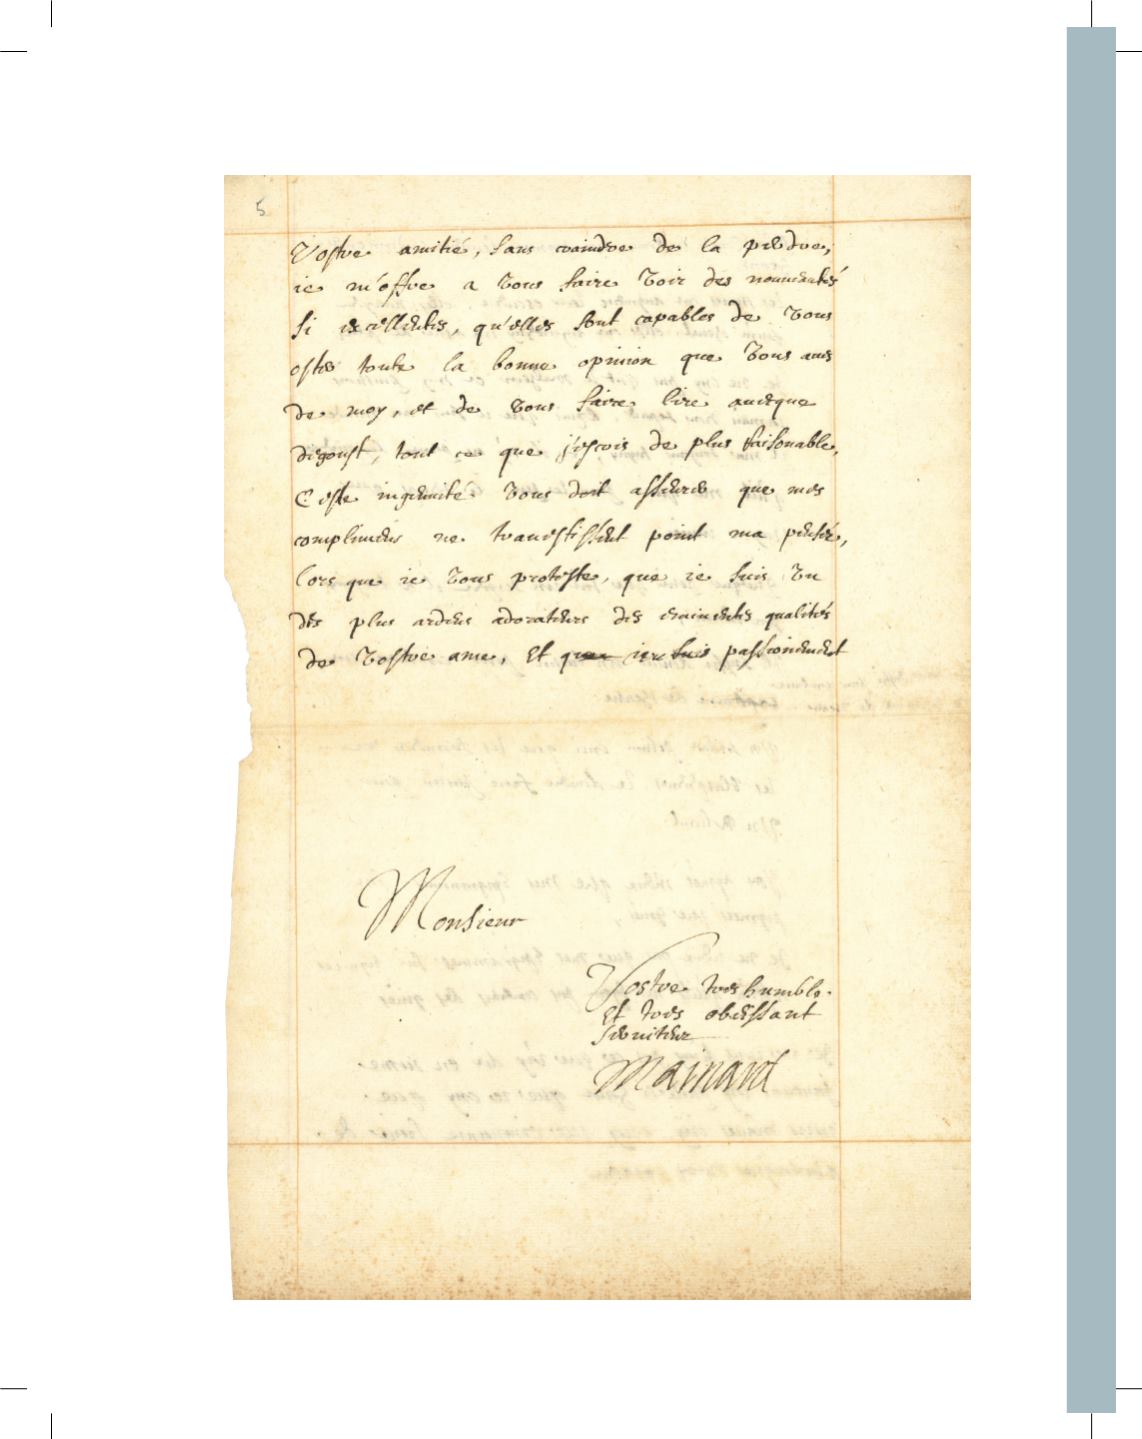 5
Vostre amitié, sans craindre de la perdre,
ie m'offre a vous faire voir des nouueautés
si excellentes, qu'elles sont capables de vous
oster toute la bonne opinion que vous aues
de moy, et de vous faire lire auecque
degoust, tout ce que j'escris de plus raisonable.
Ceste ingenuité vous doit asseurer que mes
complimens ne trauestissent point ma pensée,
lors que ie vous proteste, que ie suis vn
des plus ardens adorateurs des eminentes qualités
de vostre ame, Et que ie suis passionement
Monsieur
Vostre tres humble
et tres obeissant
seruiteur
Mainard